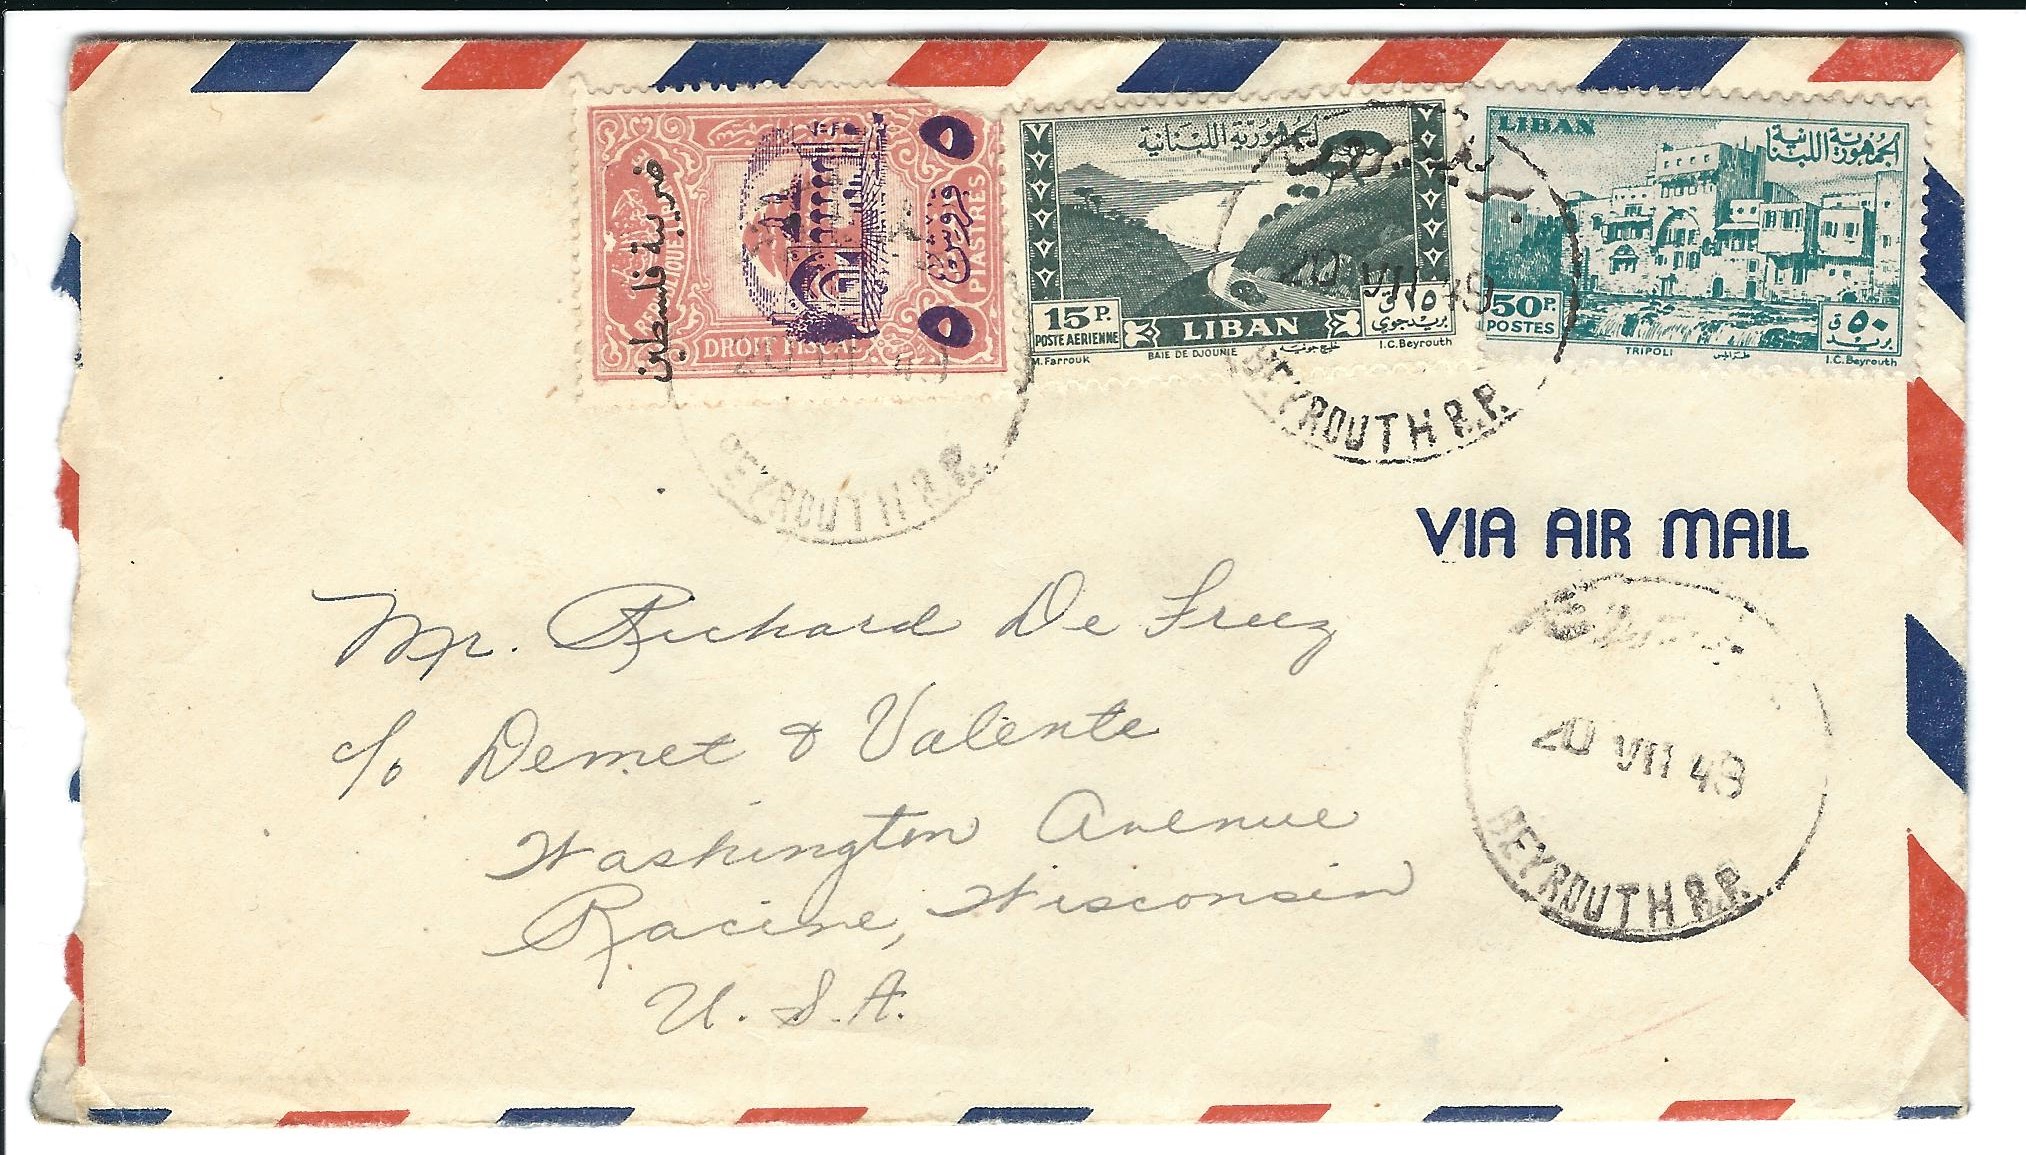 ضريبة فلسطين
REPUBLIQUE
DROIT FISCAL
٥
قروش
٥
PIASTRES
20 VII 4
BEYROUTH R.P.
الجمهورية اللبنانية
15 P.
POSTE AERIENNE
LIBAN
١٥ ق
بريد جوي
M. Farrouk
BAIE DE DJOUNIE
خليج جونية
I.C. Beyrouth
بيروت
20 VII 49
BEYROUTH R.P.
LIBAN
الجمهورية اللبنانية
50 P.
POSTES
٥٠ ق
بريد
TRIPOLI
طرابلس
I.C. Beyrouth
VIA AIR MAIL
20 VII 48
BEYROUTH R.P.
Mr. Richard De Freez
c/o Demet & Valente
Washington Avenue
Racine, Wisconsin
U. S. A.